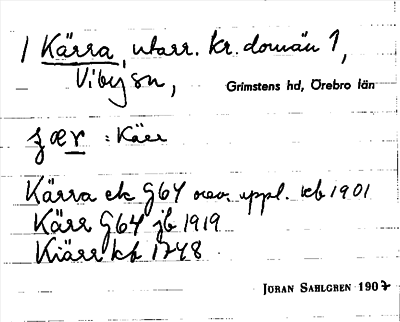 1 Kärra, utarr. kr. domän 1,
Viby sn,
Grimstens hd, Örebro län
ʒær : Kärr
Kärra ek G64 uppl. rkb 1901
Kärr G64 jb 1919
Kiärr kb 1748
JÖRAN SAHLGREN 1907